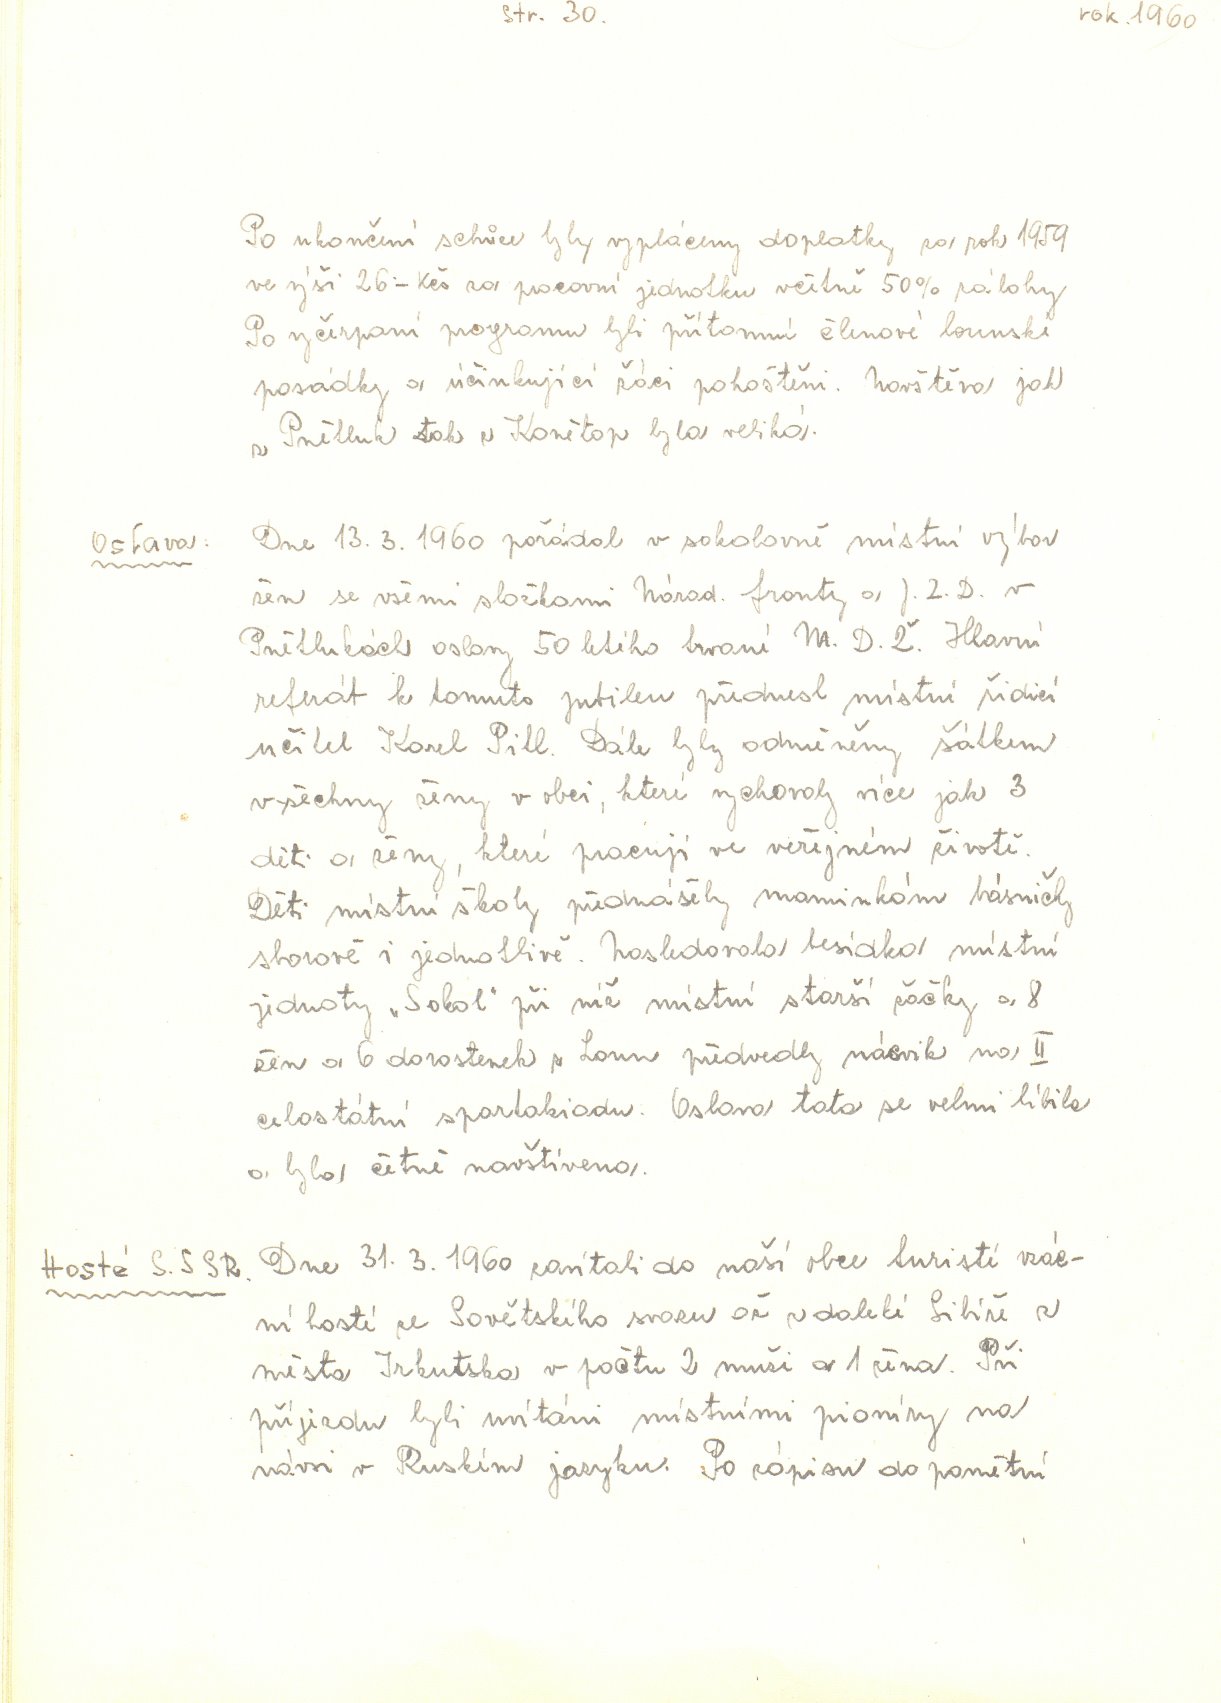 str. 30.
rok. 1960
Po ukončení schůze byly vypláceny doplatky za rok 1959
ve výši 26.- Kčs za pracovní jednotku včetně 50% zálohy
Po vyčerpaní programu byli přítomní členové lounské
posádky a účinkující žáci pohoštěni. Navštěva jak
z Pnětluk tak z Konětop byla veliká.
Oslava:
Dne 13. 3. 1960 pořádal v sokolovně místní výbor
žen se všemi složkami Národ. fronty a J. Z. D. v
Pnětlukách oslavy 50 letého trvaní M. D. Ž. Hlavní
referát k tomuto jubileu přednesl místní řídící
učitel Karel Pill. Dále byly odměněny šátkem
všechny ženy v obci, které vychovaly více jak 3
děti a ženy, které pracují ve veřejném životě.
Děti místní školy přednášely maminkám básničky
sborově i jednotlivě. Následovala besídka místní
jednoty „Sokol" při níž místní starší žačky a 8
žen a 6 dorostenek z Loun předvedly nácvik na II
celostátní spartakiadu. Oslava tato se velmi líbila
a byla četně navštívena.
Hosté S.S SR.
Dne 31. 3. 1960 zavítali do naší obce turisté vzác-
ní hosté ze Sovětského svazu až z daleké Sibiře z
města Irkutska v počtu 2 muži a 1 žena. Při
příjezdu byli uvítáni místními pionýry na
návsi v Ruském jazyku. Po zápisu do pamětní